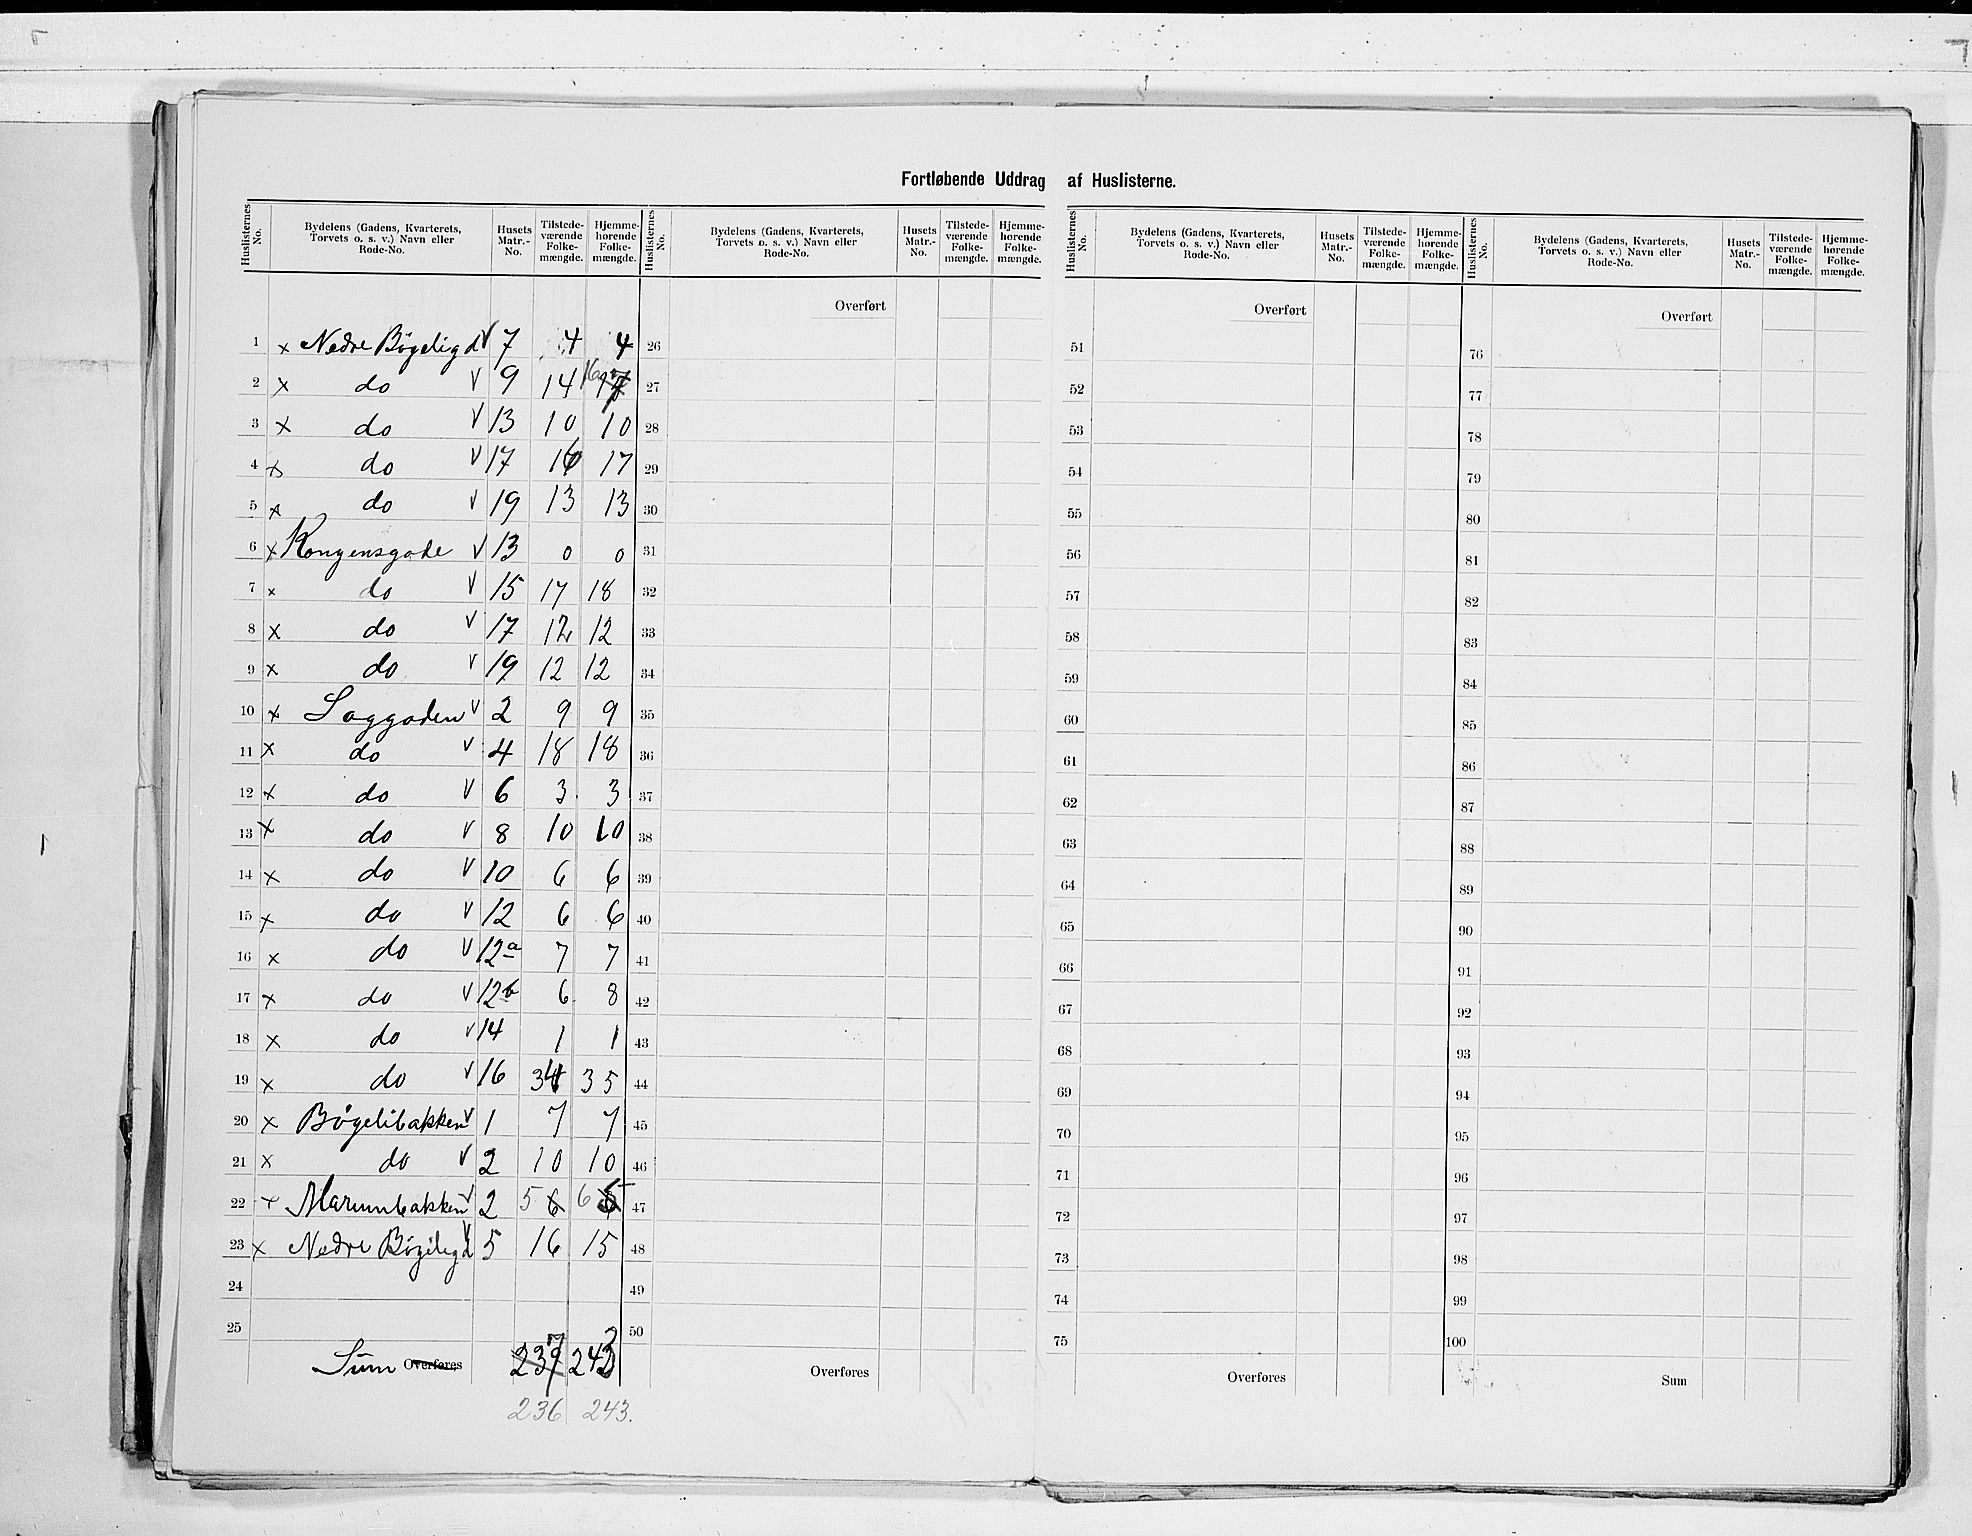 Fortløbende Uddrag af Huslisterne.
Huslisternes No. Bydelens (Gadens, Kvarterets, Torvets o. s. v.) Navn eller Rode-No. Husets Matr.-No. Tilstede-værende Folke-mængde. Hjemme-hørende Folke-mængde.
Huslisternes No. Bydelens (Gadens, Kvarterets, Torvets o. s. v.) Navn eller Rode-No. Husets Matr.-No. Tilstede-værende Folke-mængde. Hjemme-hørende Folke-mængde.
Huslisternes No. Bydelens (Gadens, Kvarterets, Torvets o. s. v.) Navn eller Rode-No. Husets Matr.-No. Tilstede-værende Folke-mængde. Hjemme-hørende Folke-mængde.
Huslisternes No. Bydelens (Gadens, Kvarterets, Torvets o. s. v.) Navn eller Rode-No. Husets Matr.-No. Tilstede-værende Folke-mængde. Hjemme-hørende Folke-mængde.
Overført Overført Overført
1 x Nedre Bøgeligd V 7 4 4 26 51 76
2 x do V 9 14 16 17 27 52 77
3 x do V 13 10 10 28 53 78
4 x do V 17 16 17 29 54 79
5 x do V 19 13 13 30 55 80
6 x Kongensgade V 13 0 0 31 56 81
7 x do V 15 17 18 32 57 82
8 x do V 17 12 12 33 58 83
9 x do V 19 12 12 34 59 84
10 x Saggaden V 2 9 9 35 60 85
11 x do V 4 18 18 36 61 86
12 x do V 6 3 3 37 62 87
13 x do V 8 10 10 38 63 88
14 x do V 10 6 6 39 64 89
15 x do V 12 6 6 40 65 90
16 x do V 12a 7 7 41 66 91
17 x do V 12b 6 8 42 67 92
18 x do V 14 1 1 43 68 93
19 x do V 16 34 35 44 69 94
20 x Bøgelibakken V 1 7 7 45 70 95
21 x do V 2 10 10 46 71 96
22 x Mariumbakken V 2 5 6 6 5 47 72 97
23 x Nedre Bøgeligd V 5 16 15 48 73 98
24 49 74 99
25 50 75 100
Sum Overføres 239 7 243 3 Overføres Overføres Sum
236 243.